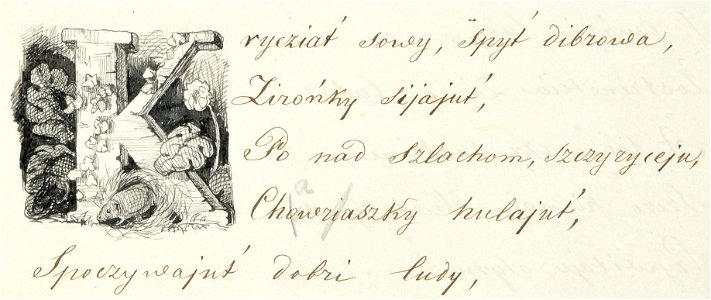 Krycziat́ sowy, śpyt́ dibrowa,
Zirońky sijajut́,
Po nad szlachom, szczyryceju,
Chowriaszky hulajut́,
Spoczywajut́ dobri ludy,